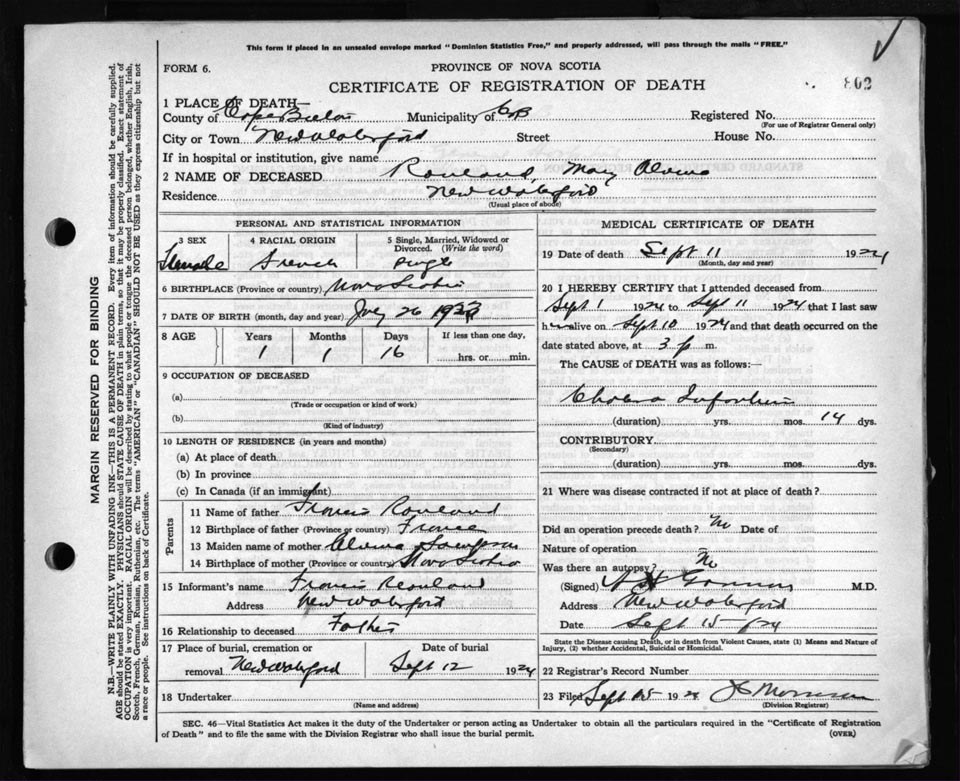 This form if placed in an unsealed envelope marked "Dominion Statistics Free," and properly addressed, will pass through the mails "FREE."
FORM 6.
PROVINCE OF NOVA SCOTIA
CERTIFICATE OF REGISTRATION OF DEATH
803
1 PLACE OF DEATH—
County of Cape Breton Municipality of CB Registered No.
(For use of Registrar General only)
City or Town New Waterford Street House No.
If in hospital or institution, give name
2 NAME OF DECEASED Rouland, Mary Alvina
Residence New Waterford
(Usual place of abode)
PERSONAL AND STATISTICAL INFORMATION
3 SEX Female
4 RACIAL ORIGIN French
5 Single, Married, Widowed or Divorced. (Write the word) Single
6 BIRTHPLACE (Province or country) Nova Scotia
7 DATE OF BIRTH (month, day and year) July 26 1923
8 AGE Years Months Days If less than one day,
1 1 16 hrs. or min.
9 OCCUPATION OF DECEASED
(a)
(Trade or occupation or kind of work)
(b)
(Kind of industry)
10 LENGTH OF RESIDENCE (in years and months)
(a) At place of death
(b) In province
(c) In Canada (if an immigrant)
Parents
11 Name of father Francis Rouland
12 Birthplace of father (Province or country) France
13 Maiden name of mother Alvina Sampson
14 Birthplace of mother (Province or country) Nova Scotia
15 Informant's name Francis Rouland
Address New Waterford
16 Relationship to deceased Father
17 Place of burial, cremation or removal New Waterford
Date of burial Sept 12 1924
18 Undertaker
(Name and address)
MEDICAL CERTIFICATE OF DEATH
19 Date of death Sept 11 1924
(Month, day and year)
20 I HEREBY CERTIFY that I attended deceased from
Sept 1 1924 to Sept 11 1924 that I last saw
her alive on Sept 10 1924 and that death occurred on the
date stated above, at 3 p m.
The CAUSE of DEATH was as follows:—
Cholera Infantum
(duration) yrs. mos. 14 dys.
CONTRIBUTORY
(Secondary)
(duration) yrs. mos. dys.
21 Where was disease contracted if not at place of death?
Did an operation precede death? No Date of
Nature of operation
Was there an autopsy? No
(Signed) M.D.
Address New Waterford
Date Sept 15/24
State the Disease causing Death, or in death from Violent Causes, state (1) Means and Nature of
Injury, (2) whether Accidental, Suicidal or Homicidal.
22 Registrar's Record Number
23 Filed Sept 15 1924
(Division Registrar)
SEC. 46—Vital Statistics Act makes it the duty of the Undertaker or person acting as Undertaker to obtain all the particulars required in the "Certificate of Registration
of Death" and to file the same with the Division Registrar who shall issue the burial permit.
(OVER)
MARGIN RESERVED FOR BINDING
N.B.—WRITE PLAINLY WITH UNFADING INK—THIS IS A PERMANENT RECORD. Every item of information should be carefully supplied.
AGE should be stated EXACTLY. PHYSICIANS should STATE CAUSE OF DEATH in plain terms, so that it may be properly classified. Exact statement of
OCCUPATION is very important. RACIAL ORIGIN will be described by stating to what people or tongue the deceased person belonged, whether English, Irish,
Scotch, French, German, Russian, Ruthenian, etc. The terms "AMERICAN" or "CANADIAN" SHOULD NOT BE USED as they express citizenship but not
a race or people. See instructions on back of Certificate.